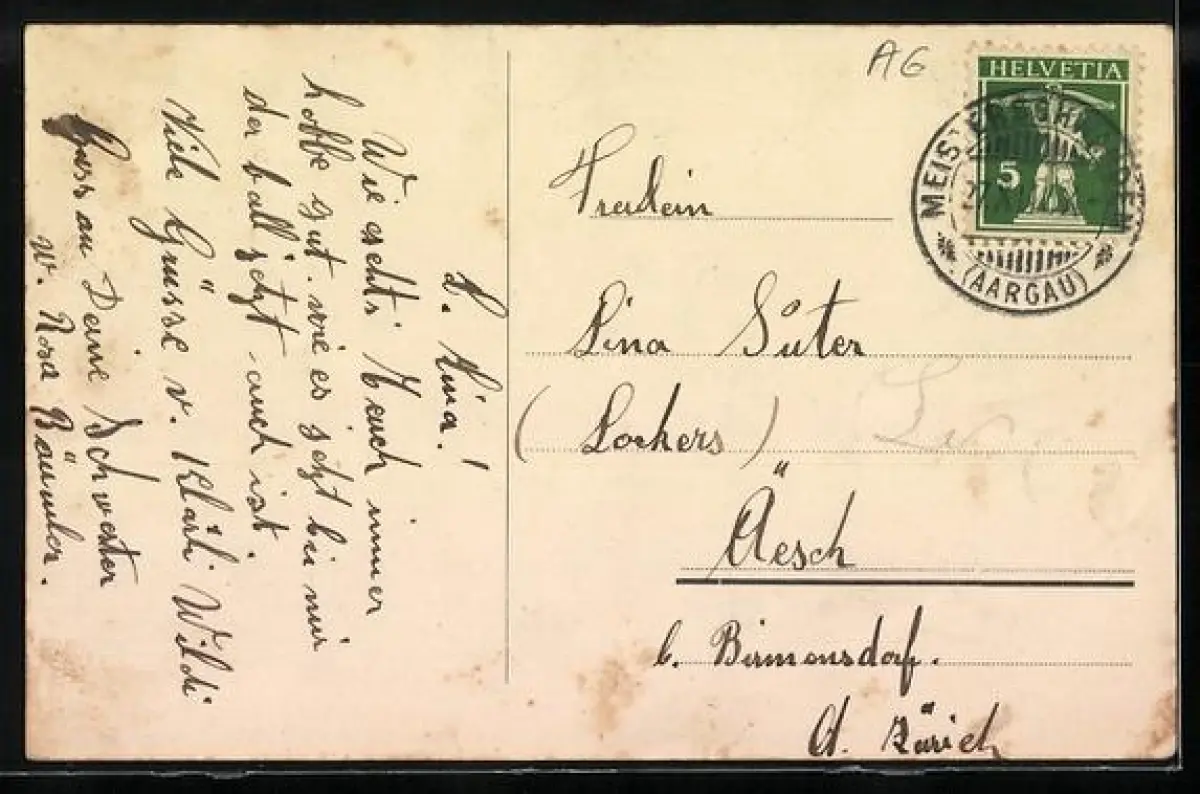 L. Lina!
Wie gehts Euch immer
hoffe gut. wie es jetzt bei mir
der Fall jetzt auch ist.
Viele Grüsse v. Klärli Wildi
Gruss an Deine Schwester
v. Rosa Bäumler.
AG
HELVETIA
5
MEIS
(AARGAU)
Freulein
Lina Suter
(Lockers)
Äesch
b. Birmensdorf.
Ct. Zürich